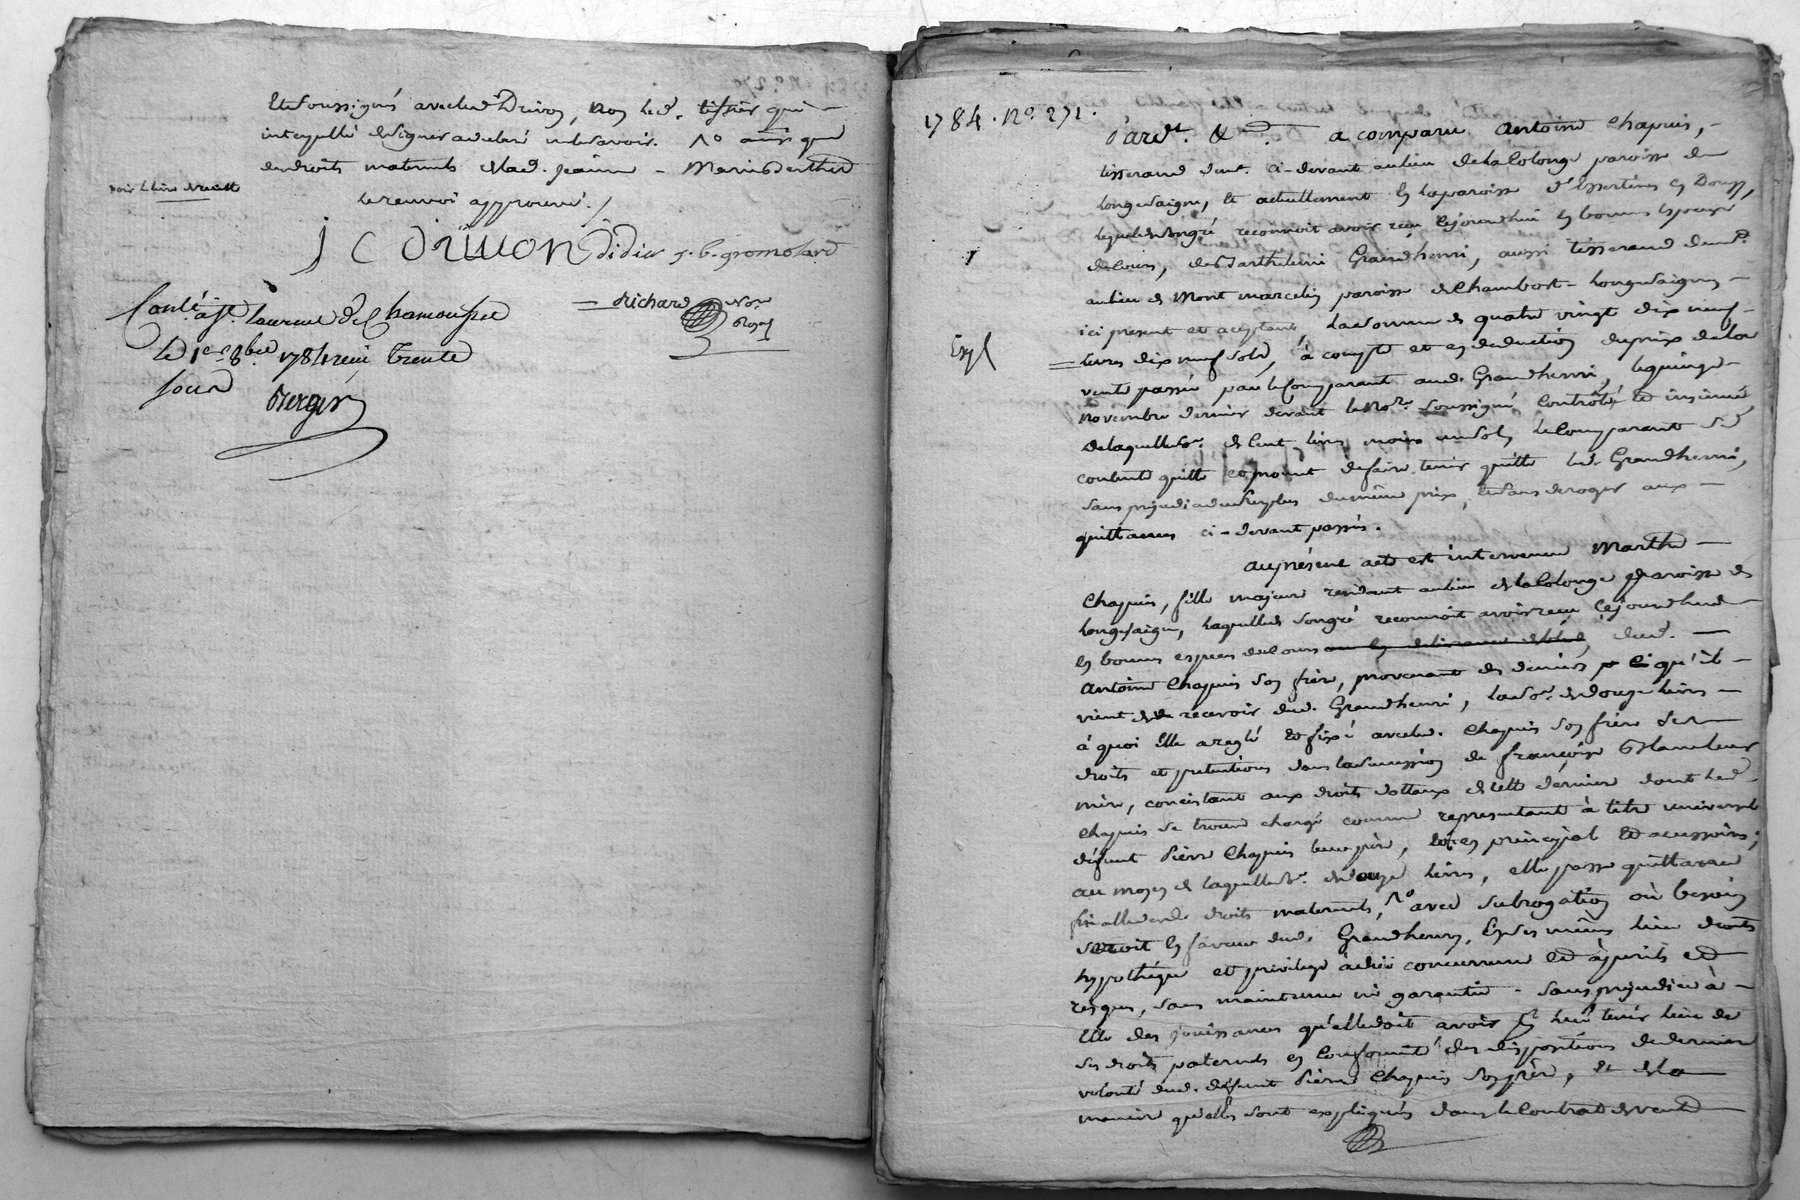 Et soussignés avec led. Drivon, non led. tissier qui
interpellé de signer a déclaré ne le savoir. No ainsi que
des droits maternels de lad. Jeanne Marie Berthet
le renvoi approuvé./
voir le livre de recette
J C Drivon Didier j. b. gromolard
richard No.re Royal
Conlé. à St. Laurent de Chamousset
le 1er 8bre 1784 reçu trente
sous
Berger
1784. No. 271.
Pardt. &. a comparu Antoine Chapuis,
tisserand demt. ci-devant au lieu de la Colonge paroisse de
longesaigne, et actuellement en la paroisse d'Essertines en Donzy,
lequel de son gré reconnoit avoir reçu cejourd'hui en bonnes especes
de cours, de Barthelemi Grandhenri, aussi tisserand demt.
au lieu de Mont marcelin paroisse de Chambost-longesaigne
ici present et acceptant, la somme de quatre vingt dix neuf
Expl
livres dix neuf sols, à compte et en deduction du prix de la
vente passée par le Comparant aud. Grandhenri, le quinze
novembre dernier devant le Nore. soussigné, Controlé et insinué
de laquelle se. de Cent livres moins un sol, le Comparant se
contente quitte et promet de faire tenir quitte led. Grandhenri,
sans prejudice du surplus du même prix, et sans deroger aux
quittances ci-devant passées.
au présent acte est intervenue Marthe
Chapuis, fille majeure residant au lieu de la Colonge paroisse de
longesaigne, laquelle de son gré reconnoit avoir reçu cejourd'hui
en bonnes especes de cours dud.
Antoine Chapuis son frère, provenant des deniers qu'il
vient de recevoir dud. Grandhenri, la se. de douze livres
à quoi elle a reglé et fixé avec led. Chapuis son frère ses
droits et pretentions dans la succession de françoise
mère, consistant aux droits dottaux de cette dernier dont led.
Chapuis se trouve chargé comme representant à titre universel
défunt Pierre Chapuis leur père, et en principal et accessoires;
au moyen de laquelle se. de douze livres, elle passe quittance
finalle desd. droits maternels, No avec subrogation où besoin
seroit en faveur dud. Grandhenry, Es des mêmes lieu droits
hypothéque et privilege à due concurrence et à perils et
risques, sans maintenue ni garentie - sans prejudice à
elle des jouissances qu'elle doit avoir pour lui tenir lieu de
ses droits paternels en conformité des dispositions de derniere
volonté dud. défunt Pierre Chapuis son père, et de la
maniere qu'elles sont expliqués dans le Contrat de vente